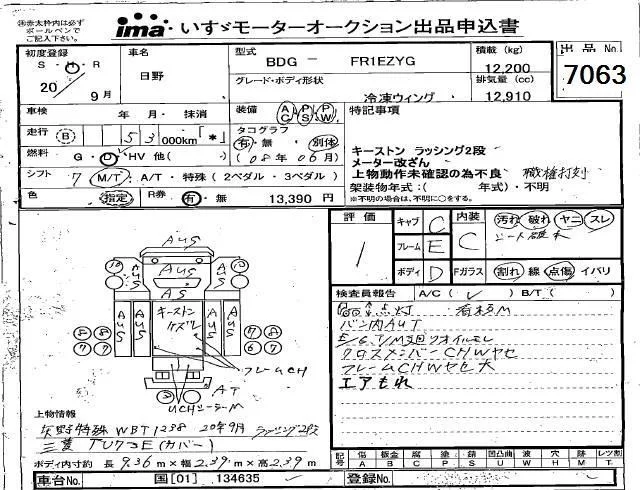 ㊟赤太枠内は必ず
ボールペンで
ご記入下さい。
ima いすゞモーターオークション出品申込書
初度登録 S・H・R 20年 9月
車名 日野
型式 BDG ― FR1EZYG
積載 (kg) 12,200
グレード・ボディ形状 冷凍ウィング
排気量 (cc) 12,910
出品 No. 7063
車検 年 月・ 抹消
装備 AC PS PW
特記事項
走行 (B) 53 000km「*」
タコグラフ 有・無 別体 (08年06月)
キーストン ラッシング2段
メーター改ざん
燃料 G・D・HV 他( )
上物動作未確認の為不良 職権打刻
シフト 7 M/T・A/T・特殊 (2ペダル・3ペダル)
架装物年式:( 年式)・不明
※不明の場合は、不明に○をする。
色 指定 R券 有・無 13,390 円
評価 1
キャブ C
フレーム E
ボディ D
内装 C
汚れ 破れ ヤニ スレ
シート破れ
Fガラス 割れ 線 点傷 イバリ
検査員報告 A/C( ✓ ) B/T( )
バン内AUT
クロスメンバーCHWヤセ
フレームCHWヤセ大
エアもれ
AUS
AUS
AS
AUS AUS AUS AUS
キーストン
フレームCH
AT
上物情報
矢野特殊 WBT1238 20年9月 ラッシング2段
三菱 TU73E(カバー)
ボディ内寸約 長 9.36 m × 幅 2.39 m × 高 2.39 m
記号 傷A 板金B 腐C 塗P 錆S 凹凸曲U 波W 穴H 跡M レツ割T
車台No. 国[01] 134635
登録No.